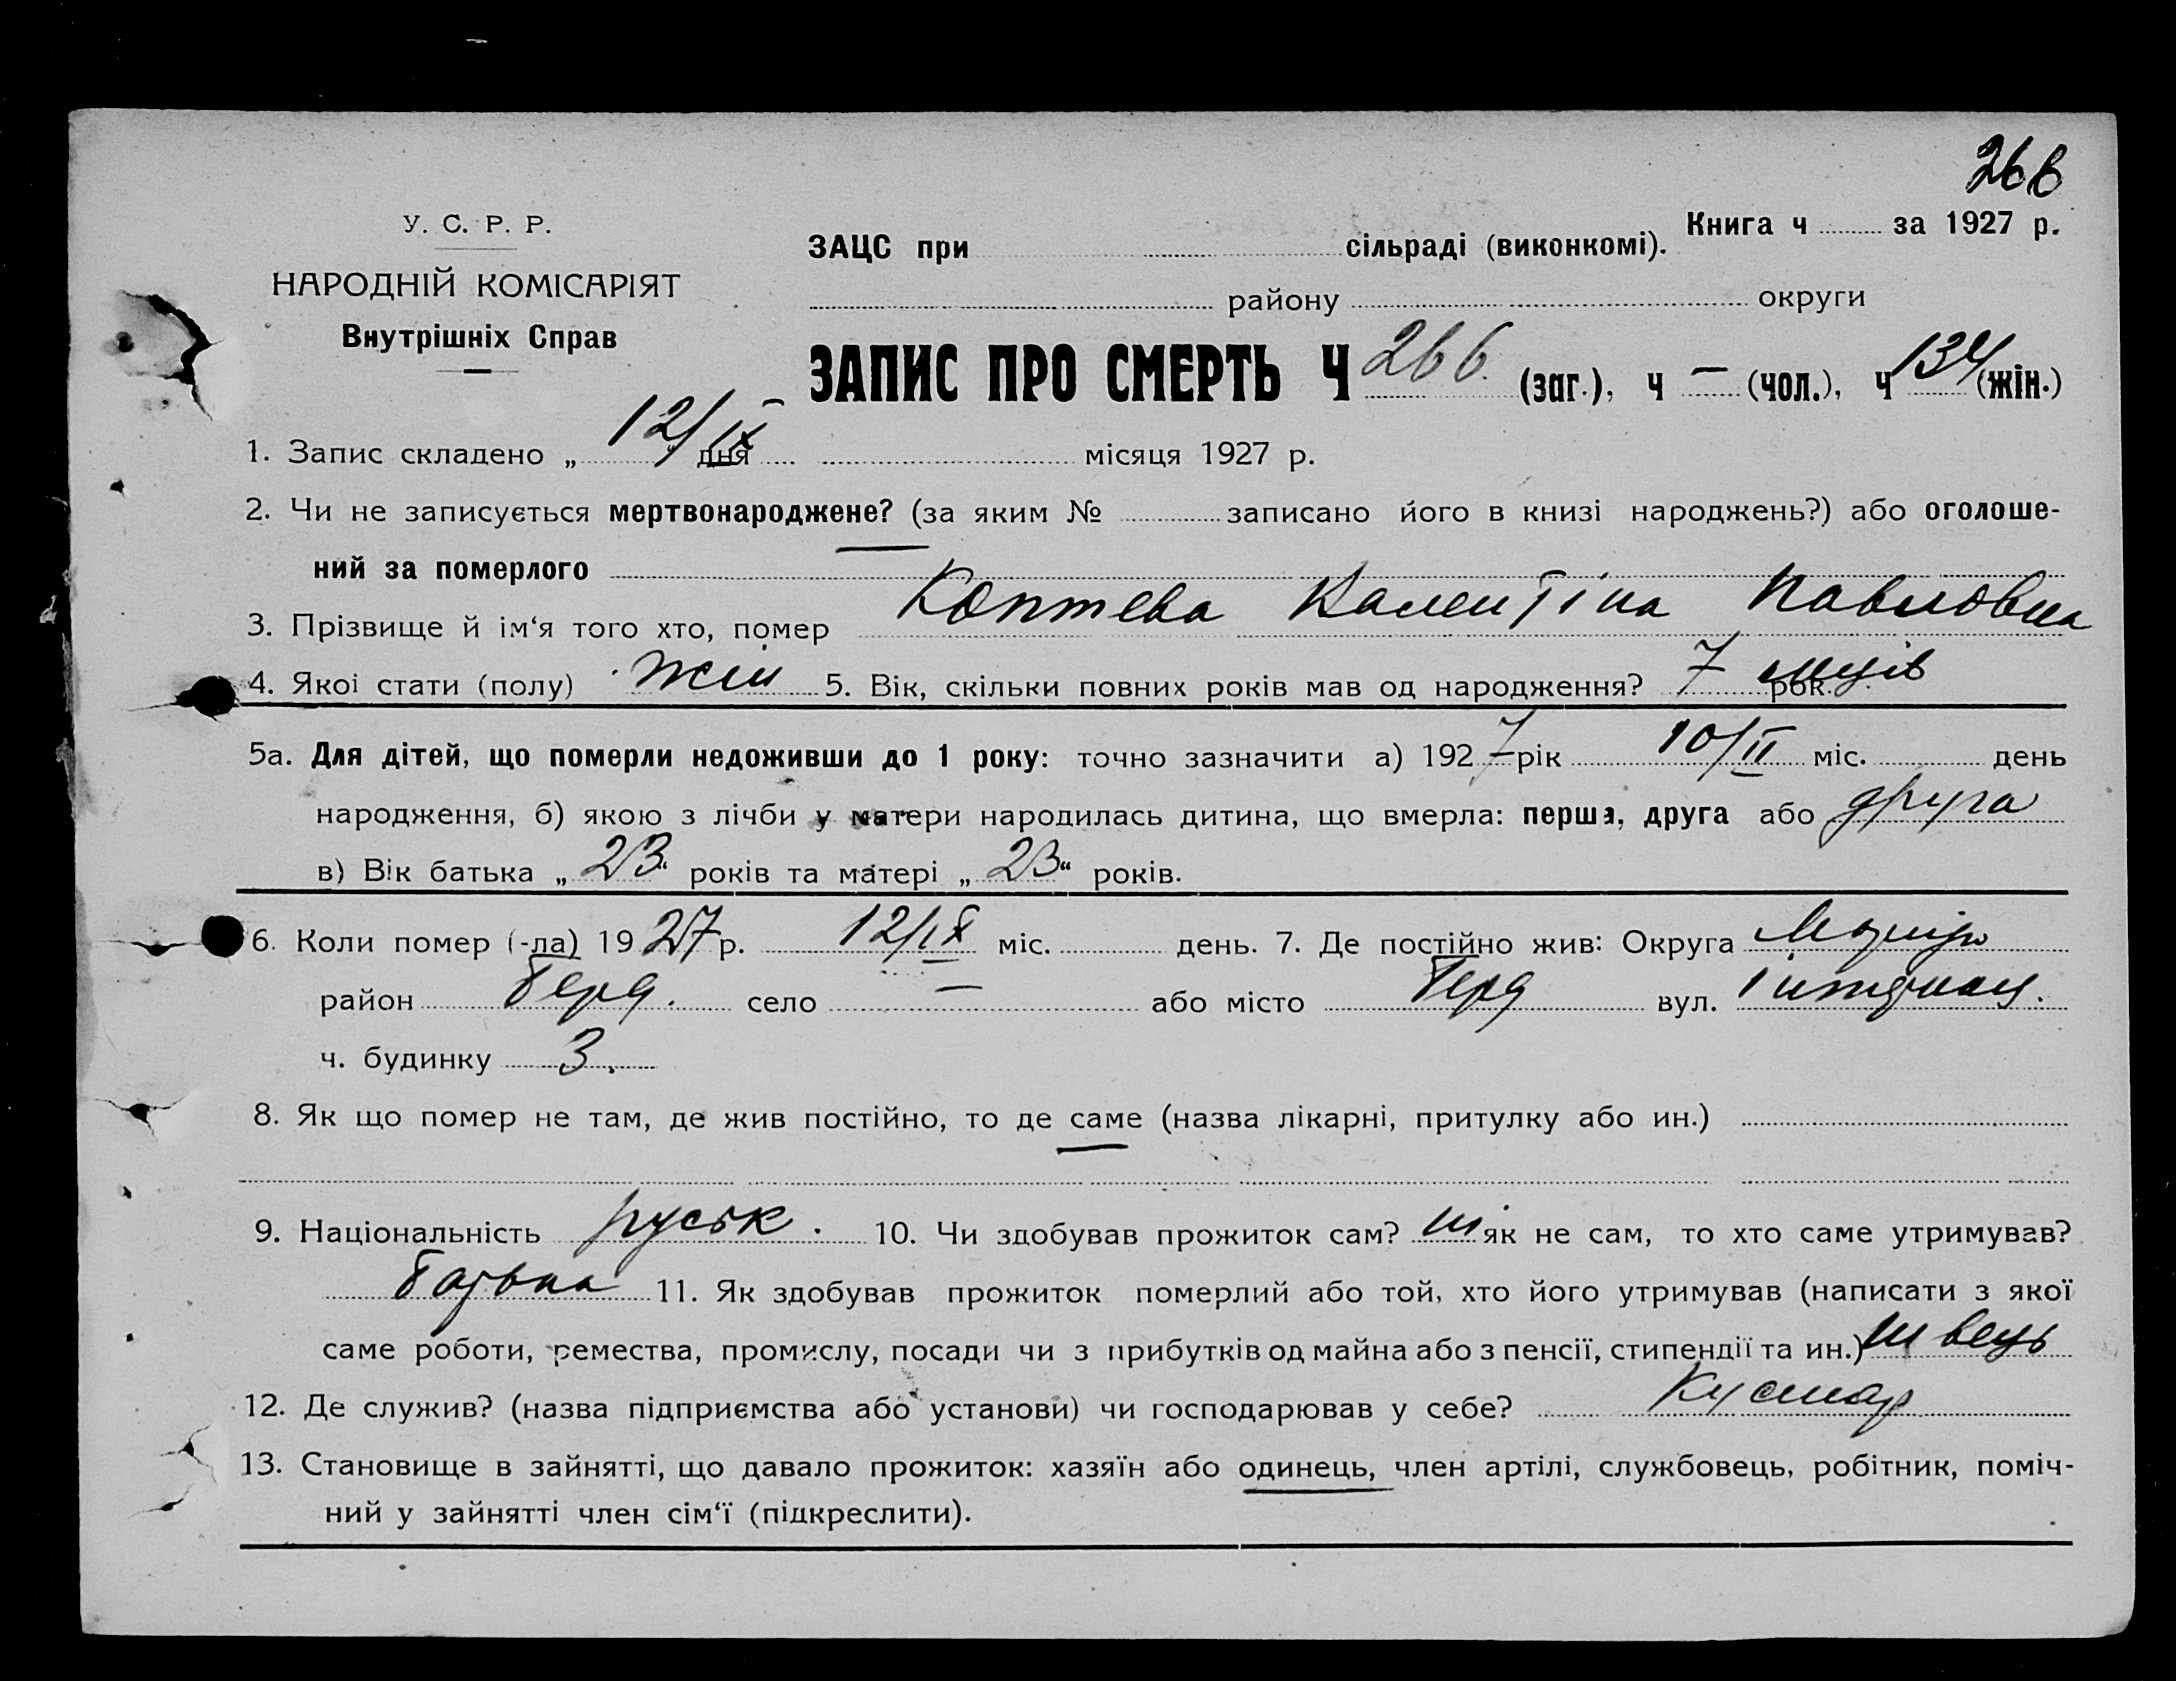 266
У. С. Р. Р.
НАРОДНІЙ КОМІСАРІЯТ
Внутрішніх Справ
Книга ч за 1927 р.
ЗАЦС при сільраді (виконкомі).
району округи
ЗАПИС ПРО СМЕРТЬ Ч 266 (заг.), ч — (чол.), ч 134 (жін.)
1. Запис складено „ 12/IX дня місяця 1927 р.
2. Чи не записується мертвонароджене? (за яким № записано його в книзі народжень?) або оголоше-
ний за померлого —
3. Прізвище й ім‘я того хто, помер Коптева Валентіна Павловна
4. Якоі стати (полу) жін 5. Вік, скільки повних років мав од народження? 7 місців рок.
5а. Для дітей, що померли недоживши до 1 року: точно зазначити а) 1927 рік 10/II міс. день
народження, б) якою з лічби у матери народилась дитина, що вмерла: перша, друга або друга
в) Вік батька „ 23 “ років та матері „ 23 “ років.
6. Коли помер (-ла) 1927 р. 12/IX міс. день. 7. Де постійно жив: Округа
район Берд. село — або місто Берд вул.
ч. будинку 3.
8. Як що помер не там, де жив постійно, то де саме (назва лікарні, притулку або ин.)
—
9. Національність руськ. 10. Чи здобував прожиток сам? ні як не сам, то хто саме утримував?
батько 11. Як здобував прожиток померлий або той, хто його утримував (написати з якої
саме роботи, ремества, промислу, посади чи з прибутків од майна або з пенсії, стипендії та ин.) швець
12. Де служив? (назва підприємства або установи) чи господарював у себе? Кустар
13. Становище в зайнятті, що давало прожиток: хазяїн або одинець, член артілі, службовець, робітник, поміч-
ний у зайнятті член сім‘ї (підкреслити).